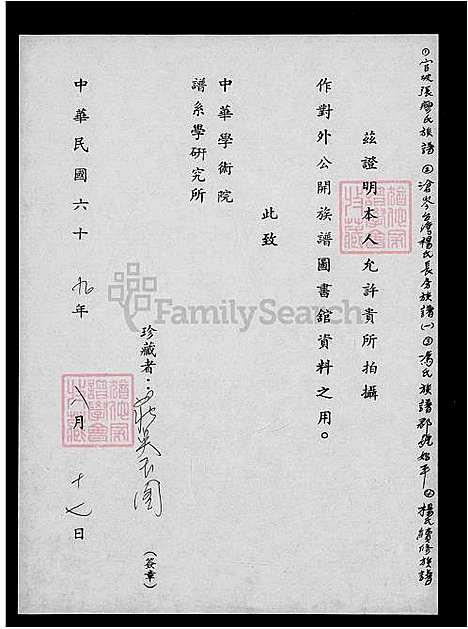 ①官坑張廖氏族譜②滄岑台灣楊氏長房族譜(一)③馮氏族譜郡號始平④楊氏續修族譜
茲證明本人允許貴所拍攝
作對外公開族譜圖書館資料之用。
此致
中華學術院
譜系學研究所
珍藏者：莊吳玉圖
(簽章)
中華民國六十九年八月十七日
FamilySearch